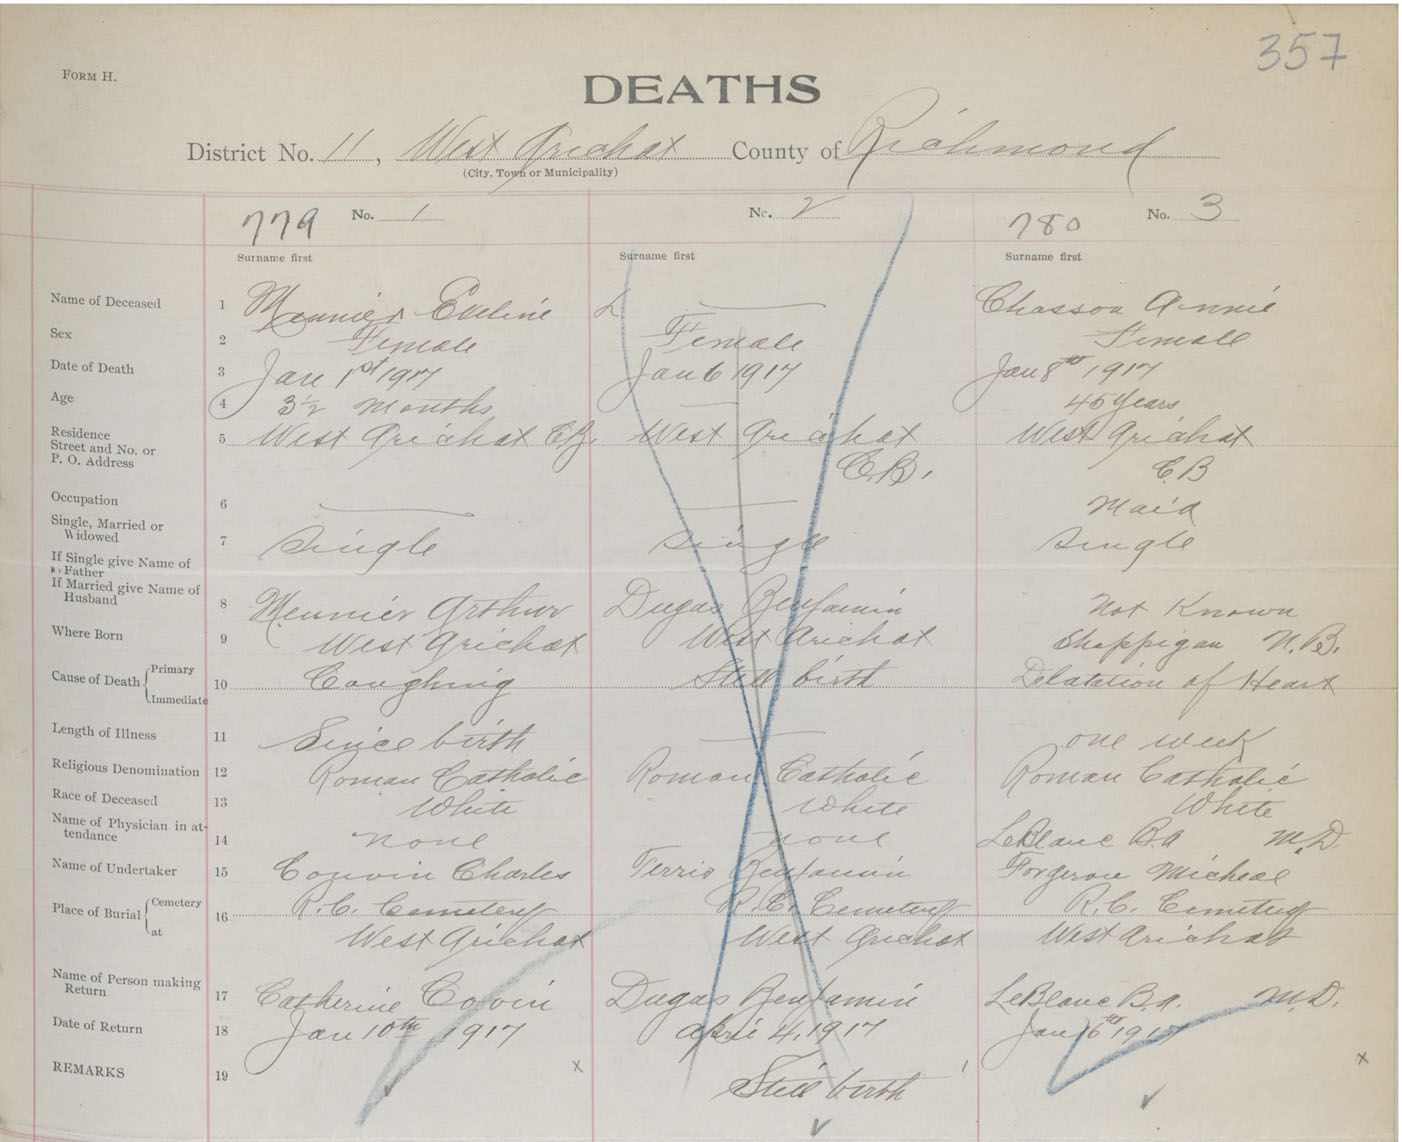 357
FORM H.
DEATHS
District No. 11, West Arichat County of Richmond
(City, Town or Municipality)
779 No. 1 No. 2 780 No. 3
Surname first Surname first Surname first
Name of Deceased 1 Meunier Eveline Chasson Annie
Sex 2 Female Female Female
Date of Death 3 Jan 1st 1917 Jan 6 1917 Jan 8th 1917
Age 4 3½ Months 45 Years
Residence
Street and No. or 5 West Arichat C.B. West Arichat West Arichat
P. O. Address C.B. C.B
Occupation 6 Maid
Single, Married or
Widowed 7 Single Single Single
If Single give Name of
Father
If Married give Name of
Husband 8 Meunier Arthur Dugas Benjamin Not Known
Where Born 9 West Arichat West Arichat Sheppigan N.B.
Cause of Death Primary
Immediate 10 Coughing Still birth Delatation of Heart
Length of Illness 11 Since birth one week
Religious Denomination 12 Roman Catholic Roman Catholic Roman Catholic
Race of Deceased 13 White White White
Name of Physician in at-
tendance 14 none none LeBlanc B.A M.D.
Name of Undertaker 15 Couvin Charles Terrio Benjamin Forgeron Micheal
Place of Burial Cemetery
at 16 R.C. Cemetery R.C. Cemetery R.C. Cemetery
West Arichat West Arichat West Arichat
Name of Person making
Return 17 Catherine Covin Dugas Benjamin LeBlanc B.A. M.D.
Date of Return 18 Jan 10th 1917 April 4, 1917 Jan 16th 1917
REMARKS 19 x Still birth x